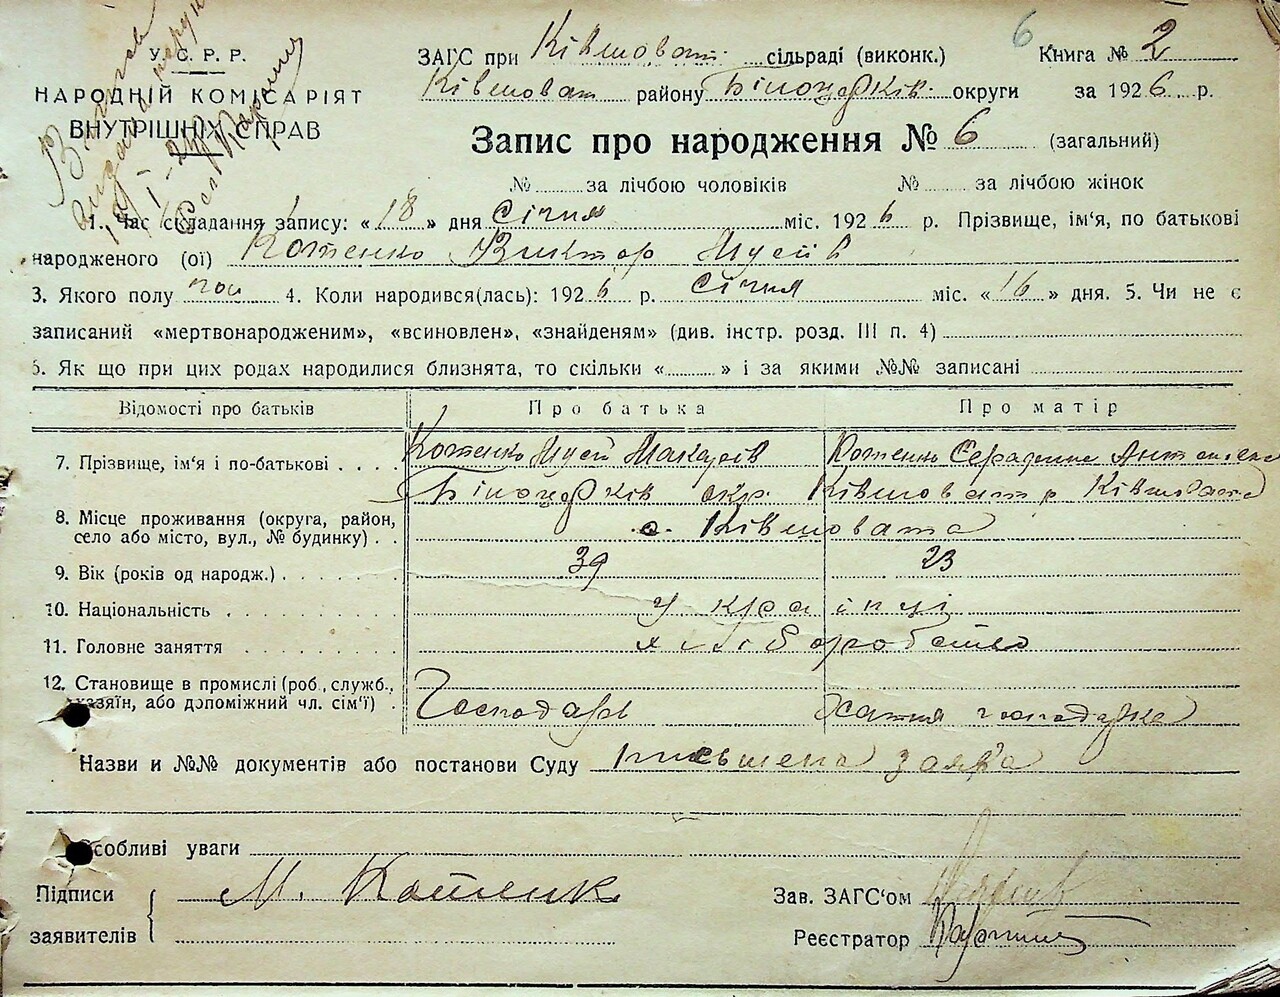 У.С.Р.Р.
НАРОДНІЙ КОМІСАРІЯТ
ВНУТРІШНІХ СПРАВ
ЗАГС при Ківшоват. сільраді (виконк.)
6
Книга № 2
Ківшоват району Білоцерків. округи за 1926 р.
Запис про народження № 6 (загальний)
№ за лічбою чоловіків № за лічбою жінок
1. Час складання запису: «18» дня Січня міс. 1926 р. Прізвище, ім'я, по батькові
народженого (ої) Котенко Виктор Мусіїв
3. Якого полу чол 4. Коли народився(лась): 1926 р. Січня міс. «16» дня. 5. Чи не є
записаний «мертвонародженим», «всиновлен», «знайденям» (див. інстр. розд. III п. 4)
6. Як що при цих родах народилися близнята, то скільки « » і за якими №№ записані
Відомості про батьків Про батька Про матір
7. Прізвище, ім'я і по-батькові Котенко Мусій Макарів Котенко Серафина
8. Місце проживання (округа, район, село або місто, вул., № будинку) Білоцерків окр. Ківшоват р Ківшовата
с. Ківшовата
9. Вік (років од народж.) 39 23
10. Національність українці
11. Головне заняття хліборобство
12. Становище в промислі (роб., служб., хазяїн, або допоміжний чл. сім'ї) Господарь хатня господарка
Назви и №№ документів або постанови Суду письмена заява
Особливі уваги
Підписи заявителів М. Котенко
Зав. ЗАГС'ом
Реєстратор